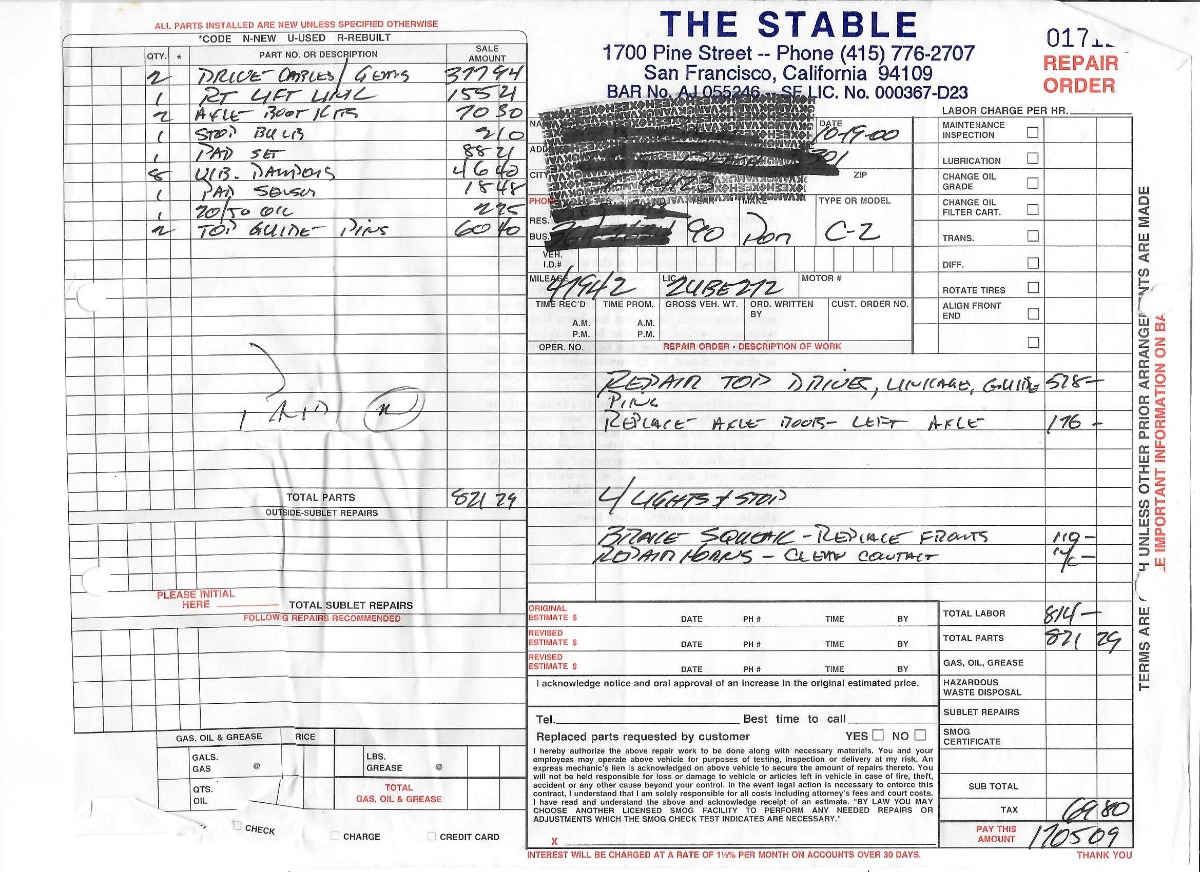 ALL PARTS INSTALLED ARE NEW UNLESS SPECIFIED OTHERWISE
*CODE N-NEW U-USED R-REBUILT
QTY. * PART NO. OR DESCRIPTION SALE AMOUNT
2 DRIVE CABLES/GEARS 377 94
1 RT LIFT LINK 155 21
2 AXLE BOOT KITS 70 30
1 STOP BULB 2 10
1 PAD SET 88 21
8 VIB. DAMPERS 46 40
1 PAD SENSOR 18 48
1 20/50 OIL 2 25
2 TOP GUIDE PINS 60 40
TOTAL PARTS 821 29
OUTSIDE-SUBLET REPAIRS
PLEASE INITIAL HERE
TOTAL SUBLET REPAIRS
FOLLOW G REPAIRS RECOMMENDED
GAS, OIL & GREASE RICE
GALS. GAS @
LBS. GREASE @
QTS. OIL
TOTAL GAS, OIL & GREASE
CHECK CHARGE CREDIT CARD
THE STABLE
1700 Pine Street -- Phone (415) 776-2707
San Francisco, California 94109
BAR No. AJ 055246 SF LIC. No. 000367-D23
0171
REPAIR ORDER
LABOR CHARGE PER HR.
DATE
10-19-00
CITY ZIP
TYPE OR MODEL
RES.
BUS.
90 Por C-2
VEH. I.D.#
MILEAGE LIC # MOTOR #
41942 2UBE272
TIME REC'D TIME PROM. GROSS VEH. WT. ORD. WRITTEN BY CUST. ORDER NO.
A.M. A.M.
P.M. P.M.
OPER. NO. REPAIR ORDER - DESCRIPTION OF WORK
MAINTENANCE INSPECTION
LUBRICATION
CHANGE OIL GRADE
CHANGE OIL FILTER CART.
TRANS.
DIFF.
ROTATE TIRES
ALIGN FRONT END
REPAIR TOP DRIVES, LINKAGE, GUIDE 528-
PINS
REPLACE AXLE BOOTS- LEFT AXLE 176-
4 LIGHTS & STOP
BRAKE SQUEAK - REPLACE FRONTS 110-
REPAIR HORNS - CLEAN CONTACT N/C-
ORIGINAL ESTIMATE $ DATE PH # TIME BY
REVISED ESTIMATE $ DATE PH # TIME BY
REVISED ESTIMATE $ DATE PH # TIME BY
I acknowledge notice and oral approval of an increase in the original estimated price.
Tel. Best time to call
Replaced parts requested by customer YES NO
I hereby authorize the above repair work to be done along with necessary materials. You and your
employees may operate above vehicle for purposes of testing, inspection or delivery at my risk. An
express mechanic's lien is acknowledged on above vehicle to secure the amount of repairs thereto. You
will not be held responsible for loss or damage to vehicle or articles left in vehicle in case of fire, theft,
accident or any other cause beyond your control. In the event legal action is necessary to enforce this
contract, I understand that I am solely responsible for all costs including attorney's fees and court costs.
I have read and understand the above and acknowledge receipt of an estimate. "BY LAW YOU MAY
CHOOSE ANOTHER LICENSED SMOG FACILITY TO PERFORM ANY NEEDED REPAIRS OR
ADJUSTMENTS WHICH THE SMOG CHECK TEST INDICATES ARE NECESSARY."
X
TOTAL LABOR 814-
TOTAL PARTS 821 29
GAS, OIL, GREASE
HAZARDOUS WASTE DISPOSAL
SUBLET REPAIRS
SMOG CERTIFICATE
SUB TOTAL
TAX 69 80
PAY THIS AMOUNT 1705 09
INTEREST WILL BE CHARGED AT A RATE OF 1½% PER MONTH ON ACCOUNTS OVER 30 DAYS.
THANK YOU
TERMS ARE H UNLESS OTHER PRIOR ARRANGE NTS ARE MADE
E IMPORTANT INFORMATION ON BA